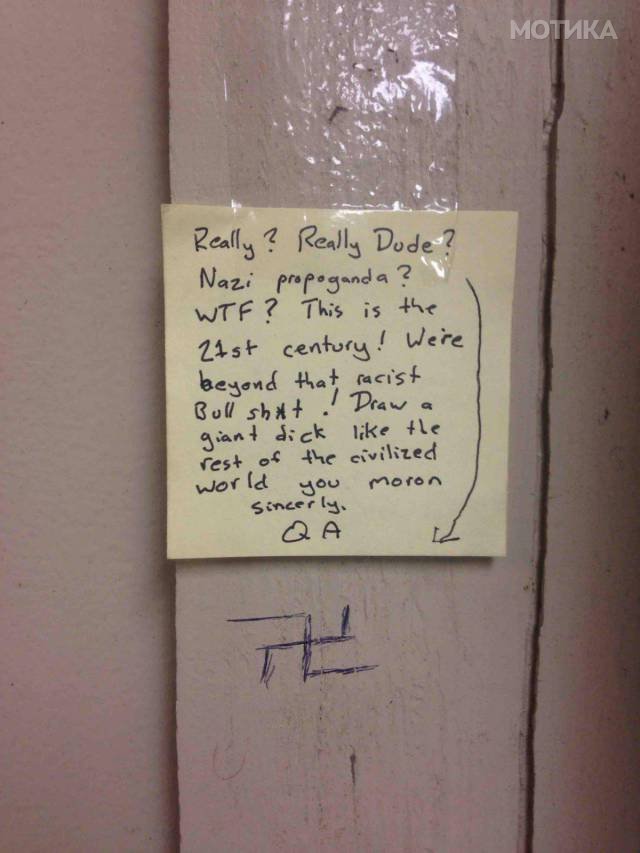 МОТИКА
Really? Really Dude?
Nazi propoganda?
WTF? This is the
21st century! We're
beyond that racist
Bull sh*t! Draw a
giant dick like the
rest of the civilized
world you moron
sincerly.
QA